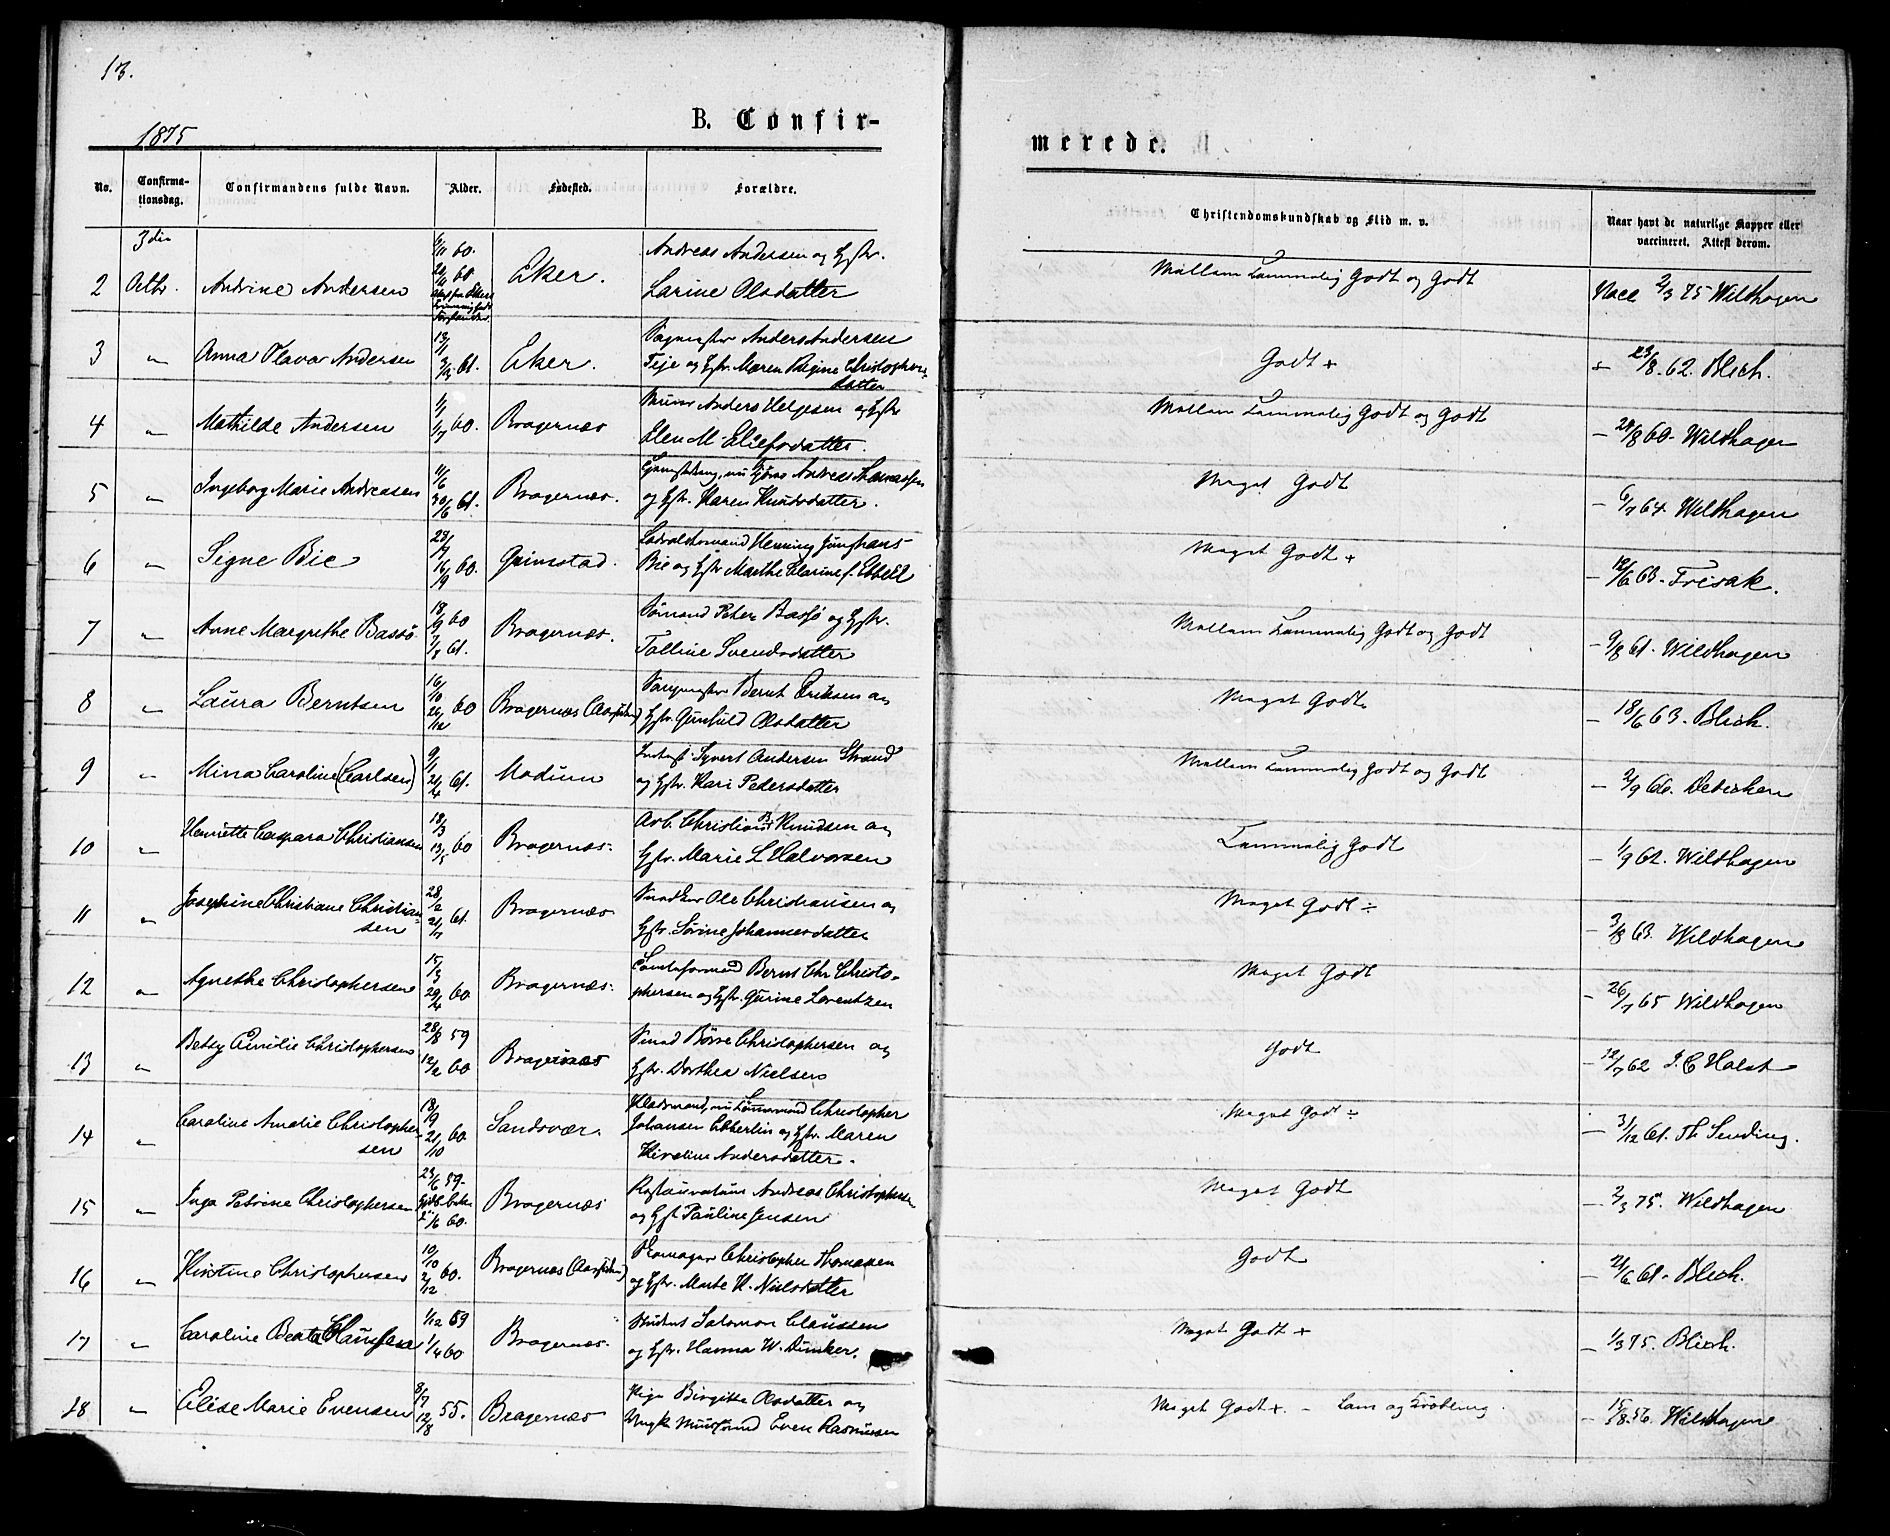 13.
1875
B. Confir-
merede.
No. Confirma-tionsdag. Confirmandens fulde Navn. Alder. Fødested. Forældre.
Christendomskundskab og Flid m. v. Naar havt de naturlige Kopper eller vaccineret. Attest derom.
3die
6/11 60. Andreas Andersen og Hstr.
2 Octbr. Andrine Andersen Eker. Larine Olsdatter Mellem Temmelig Godt og Godt Vacc 2/3 75 Wildhagen
3 " Anna Olava Andersen 61. Eker. Anders Andersen
Teje og Hstr. Maren Regine Christophers-
datter Godt + 23/8. 62. Blich.
4 " Mathilde Andersen 1/1 1/7 60. Bragernæs Anders Helgesen og Hstr
Elen M. Eliefsdatter. Mellem Temmelig Godt og Godt – 24/8 60. Wildhagen
5 " Ingeborg Marie Andreasen 11/6 30/6 61. Bragernæs. Andreas Thomassen
og Hstr. Karen Knudsdatter. Meget Godt – 6/7 64. Wildhagen
6 " Signe Bie 23/7 16/9 60. Grimstad. Henning Junghans
Bie og Hstr Marthe Clarine f. Ebbell Meget Godt + – 12/6 63. Frisak.
7 " Anne Margrethe Bassö 18/9 60 7/8 61. Bragernæs. Sömand Peter Bassö og Hstr.
Talline Svendsdatter Mellem Temmelig Godt og Godt – 9/8 61. Wildhagen
8 " Laura Berntsen 16/10 26/12 60 Bragernæs (Aassiden) Bernt Eriksen og
Hstr. Gunhild Olsdatter Meget Godt – 18/6 63. Blich.
9 " Mina Caroline (Carlsen) 9/1 21/4 61. Modum Syvert Andersen Strand
og Hstr. Kari Pedersdatter Mellem Temmelig Godt og Godt – 2/9 66.
10 " Henriette Caspara Christiansen 18/3 13/5 60 Bragernæs. Arb. Christian B. Knudsen og
Hstr. Marie L Halvorsen Temmelig Godt – 1/9 62. Wildhagen
11 " Josephine Christiane Christian-
sen 28/2 21/7 61 Bragernæs Snedker Ole Christiansen og
Hstr. Sörine Johannesdatter Meget Godt ÷ – 3/8 63. Wildhagen
12 " Agnethe Christophersen 15/3 29/4 60 Bragernæs. Bernt Chr Christo-
phersen og Hstr. Gurine Lorentzen Meget Godt – 26/7 65 Wildhagen
13 " Betty Emilie Christophersen 28/8 59 12/2 60 Bragernæs Smed Börre Christophersen og
Hstr. Dorthea Nielsen Godt – 12/7 62 J. C Holst
14 " Caroline Amalie Christopher-
sen 18/9 21/10 60 Sandsvær. Christopher
Johansen Ebberlin og Hstr. Maren
Andersdatter. Meget Godt ÷ – 3/12 61. Th Sending.
15 " Inga Petrine Christophersen 23/6 59. 60. Bragernæs Andreas Christophersen
og Hst Pauline Jensen Meget Godt – 2/3 75. Wildhagen
16 " Kirstine Christophersen 10/10 2/12 60. Bragernæs (Aassiden) Skomager Christopher Thomassen
og Hstr. Marte K. Nielsdatter Godt – 21/6 61. Blich.
17 " Caroline Beate Claussen 1/12 59 1/4 60 Bragernæs. Salomon Claussen
og Hstr. Hanna W. Dunker. Meget Godt + – 1/3 75. Blich.
18 " Elise Marie Evensen 8/7 12/8 55. Bragernæs Pige Birgitte Olsdatter og
Even Rasmussen Meget Godt +. – Lam og – 15/8. 56. Wildhagen